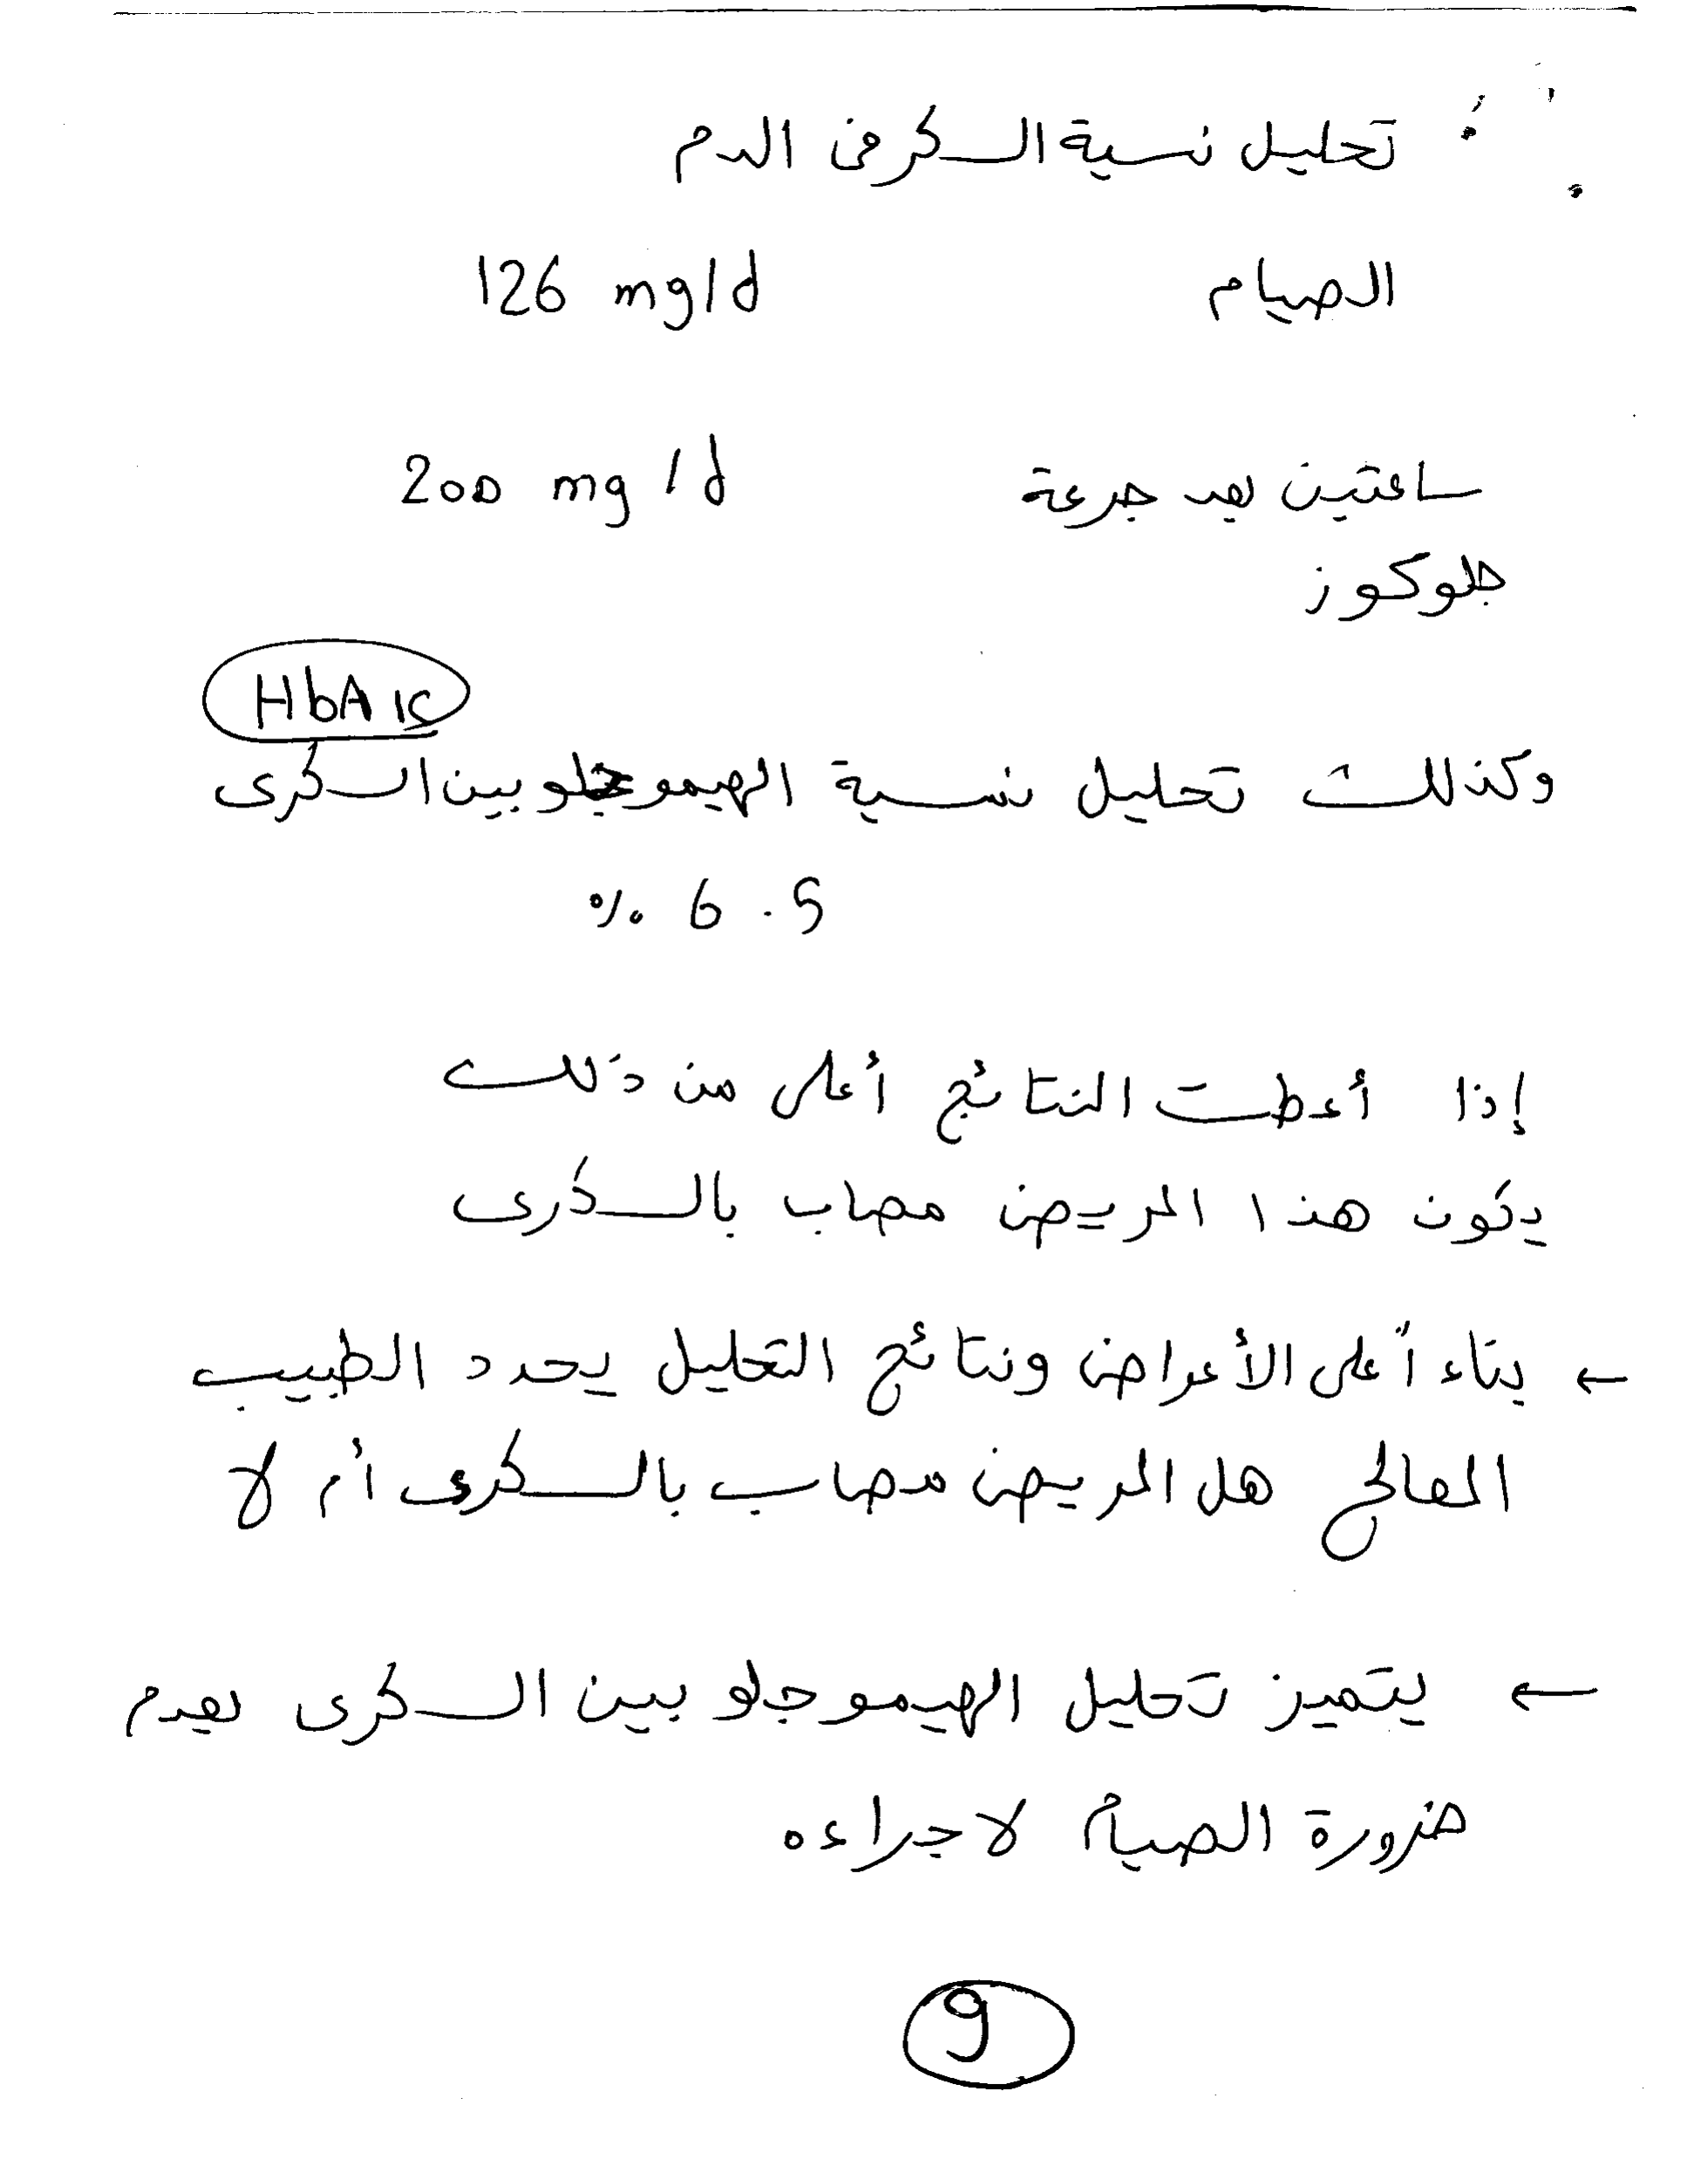 تحليل نسبة السكر فى الدم
الصيام 126 mg/d
ساعتين بعد جرعة 200 mg/d
جلوكوز
HbA1c
وكذلك تحليل نسبة الهيموجلوبين السكرى
% 6.5
إذا أعطت النتائج أعلى من ذلك
يكون هذا المريض مصاب بالسكرى
← بناءاً على الأعراض ونتائج التحليل يحدد الطبيب
المعالج هل المريض مصاب بالسكرى أم لا
← يتميز تحليل الهيموجلوبين السكرى بعدم
ضرورة الصيام لاجراءه
9